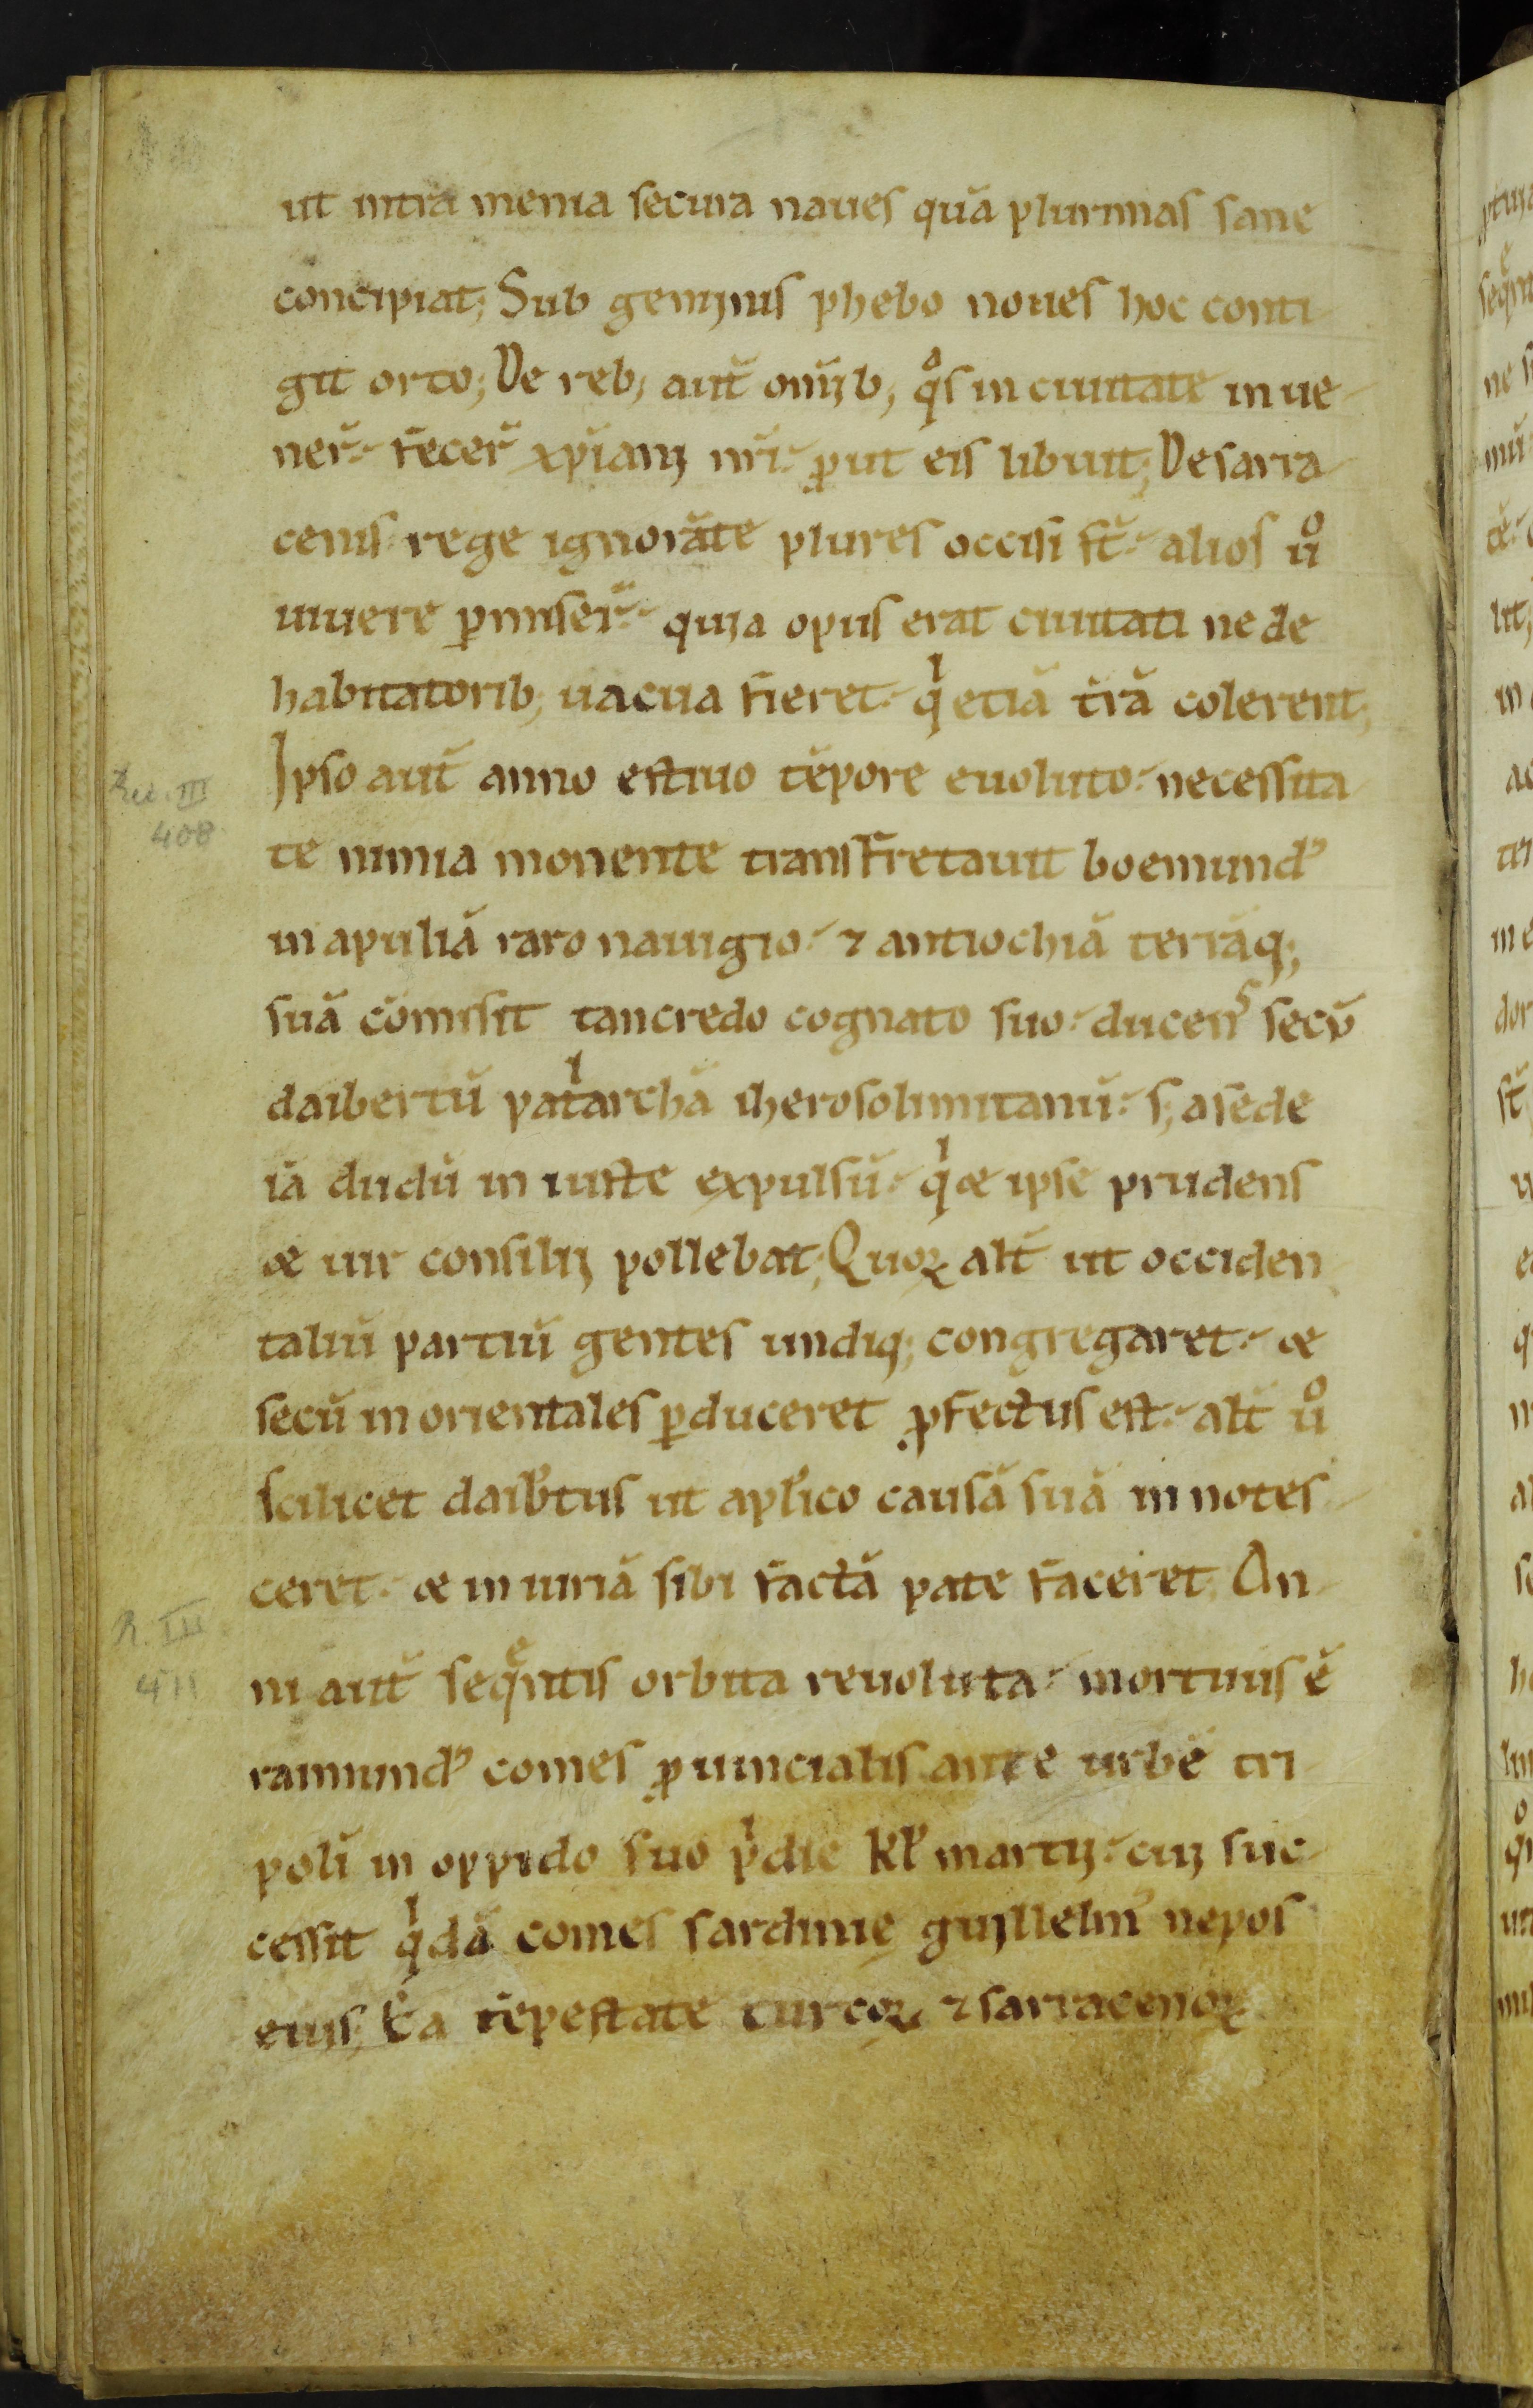 ut intra menia secura naues quā plurimas sane
concipiat; Sub geminis phebo noues hoc conti
git orto; De reb; aut̄ omīb; qͣs in ciuitate inue
ner̄. fecer̄ xp̄iani nr̄i. ꝓut eis libuit; De sarra
cenis rege ignorāte plures occisi st̄. alios uͦ
uiuere ꝑmiser̄. quia opus erat ciuitati ne de
habitatorib; uacua fieret. qͥ etiā t̄rā colerent;
Ipso aut̄ anno estiuo tēpore euoluto. necessita
te nimia monente transfretauit boemundꝰ
in apuliā raro nauigio. ⁊ antiochiā terrāq;
suā cōmisit tancredo cognato suo. ducens secū
daibertū patͥarchā iherosolimitanū. s; a sede
iā dudū iniuste expulsū. qͥ & ipse prudens
& uir consilij pollebat; Quoꝝ alt̄ ut occiden
taliū partiū gentes undiq; congregaret. &
secū in orientales ꝑduceret ꝓfectus est. alt̄ uͦ
scilicet daib̄tus ut apl̄ico causā suā innotes
ceret. & iniuriā sibi factā patefaceret; An
ni aut̄ seqͤntis orbita reuoluta. mortuus ē
raimundꝰ comes ꝓuincialis ante urbē tri
poli in oppido suo pͥdie kl̄ martij. cui suc
cessit qͥdā comes sardinię guillelmꝰ nepos
eius; Ea tēpestate turcoꝝ ⁊ sarracenoꝝ
Rec. III
408
R. III
411